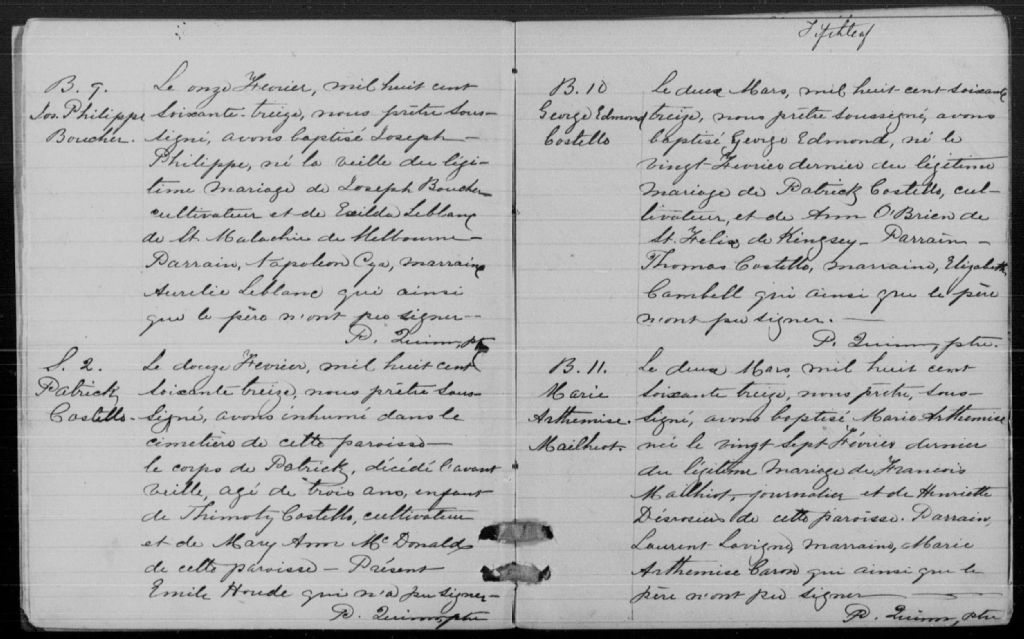 B. 9.
Jos. Philippe
Boucher.
Le onze Fevrier, mil huit cent
soixante-treize, nous prêtre sous-
signé, avons baptisé Joseph-
Philippe, né la veille du légi-
time mariage de Joseph Boucher
cultivateur et de Exilda Leblanc
de St Malachie de Melbourne—
Parrain, Napoleon Cyr, marraine
Aurelie Leblanc qui ainsi
que le père n'ont peu signer—
P. Quinn, ptr
S. 2.
Patrick
Costello.
Le douze Fevrier, mil huit cent
soixante treize, nous prêtre sous-
signé, avons inhumé dans le
cimetière de cette paroisse—
le corps de Patrick, décédé l'avant
veille, agé de trois ans, enfant
de Thimoty Costello, cultivateur
et de Mary Ann McDonald
de cette paroisse— Présent
Emile Houde qui n'a pu signer—
P. Quinn, ptre
B. 10
George Edmond
Costello
Le deux Mars, mil huit-cent-soixante
treize, nous prêtre soussigné, avons
baptisé George Edmond, né le
vingt Fevrier dernier du légitime
mariage de Patrick Costello, cul-
tivateur, et de Ann O'Brien de
St. Felix de Kingsey— Parrain—
Thomas Costello, marraine, Elizabeth
Cambell qui ainsi que le père
n'ont pu signer.—
P. Quinn, ptre.
B. 11.
Marie
Arthemise.
Mailhiot.
Le deux Mars, mil huit cent
soixante treize, nous prêtre, sous-
signé, avons baptisé Marie Arthemise
née le vingt Sept Février dernier
du légitime mariage de Francois
Mailhiot, journalier et de Henriette
Désrosiers de cette paroisse. Parrain,
Laurent Lavigne, marraine, Marie
Arthemise Caron qui ainsi que le
père n'ont pu signer—
P. Quinn, ptre